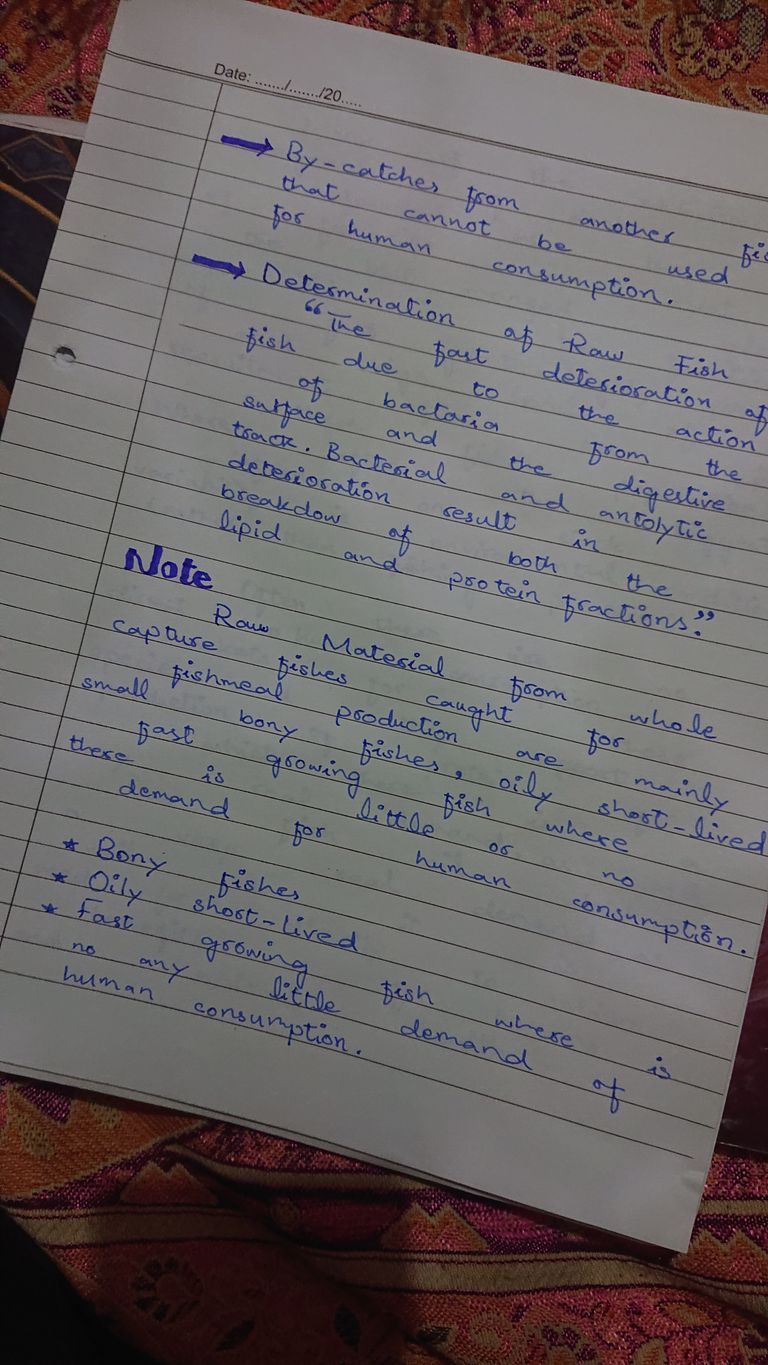 Date: ......./......./20.....
→ By-catches from another
that cannot be used
for human consumption.
→ Determination of Raw Fish
"The fast deterioration of
fish due to the action
of bactaria from the
surface and the digestive
track. Bacterial and antolytic
deterioration result in
breakdow of both the
lipid and protein fractions."
Note
Raw Material from whole
capture fishes caught for
fishmeal production are mainly
small bony fishes, oily short-lived
fast growing fish where
there is little or no
demand for human consumption.
* Bony fishes
* Oily short-lived
* Fast growing fish where is
no any little demand of
human consumption.